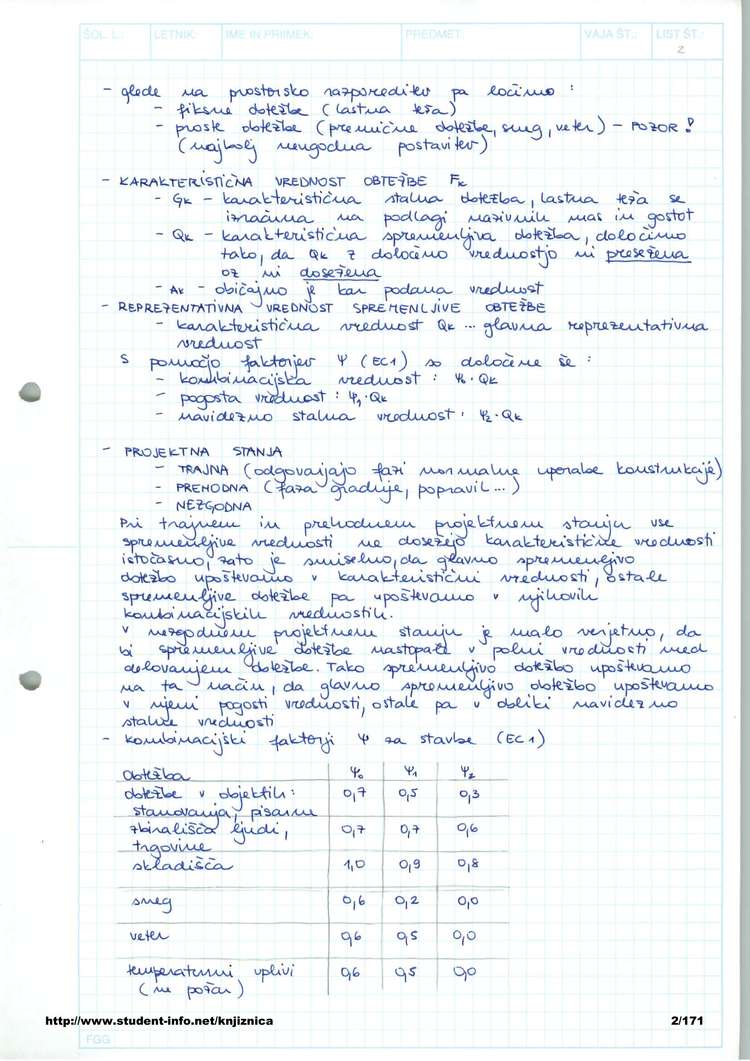 ŠOL. L.: LETNIK: IME IN PRIIMEK: PREDMET: VAJA ŠT.: LIST ŠT.:
2
- glede na prostorsko razporeditev pa ločimo :
- fiksne obtežbe (lastna teža)
- proste obtežbe (premične obtežbe, sneg, veter) - POZOR !
(najbolj neugodna postavitev)
- KARAKTERISTIČNA VREDNOST OBTEŽBE Fk
- Gk - karakteristična stalna obtežba, lastna teža se
izračuna na podlagi nazivnih mas in gostot
- Qk - karakteristična spremenljiva obtežba, določimo
tako, da Qk z določeno vrednostjo ni presežena
oz ni dosežena
- Ak - običajno je kar podana vrednost
- REPREZENTATIVNA VREDNOST SPREMENLJIVE OBTEŽBE
- karakteristična vrednost Qk ... glavna reprezentativna
vrednost
S pomočjo faktorjev Ψ (EC1) so določene še :
- kombinacijska vrednost : Ψ₀·Qk
- pogosta vrednost : Ψ₁·Qk
- navidezno stalna vrednost : Ψ₂·Qk
- PROJEKTNA STANJA
- TRAJNA (odgovarjajo fazi normalne uporabe konstrukcije)
- PREHODNA (faza gradnje, popravil ...)
- NEZGODNA
Pri trajnem in prehodnem projektnem stanju vse
spremenljive vrednosti ne dosežejo karakteristične vrednosti
istočasno, zato je smiselno, da glavno spremenljivo
obtežbo upoštevamo v karakteristični vrednosti, ostale
spremenljive obtežbe pa upoštevamo v njihovih
kombinacijskih vrednostih.
V nezgodnem projektnem stanju je malo verjetno, da
bi spremenljive obtežbe nastopale v polni vrednosti med
delovanjem obtežbe. Tako spremenljivo obtežbo upoštevamo
na ta način, da glavno spremenljivo obtežbo upoštevamo
v njeni pogosti vrednosti, ostale pa v obliki navidezno
stalne vrednosti
- kombinacijski faktorji Ψ za stavbe (EC1)
obtežba Ψ₀ Ψ₁ Ψ₂
obtežbe v objektih: 0,7 0,5 0,3
stanovanja, pisarne
zbirališča ljudi, 0,7 0,7 0,6
trgovine
skladišča 1,0 0,9 0,8
sneg 0,6 0,2 0,0
veter 0,6 0,5 0,0
temperaturni vplivi 0,6 0,5 0,0
(ne požar)
http://www.student-info.net/knjiznica 2/171
FGG